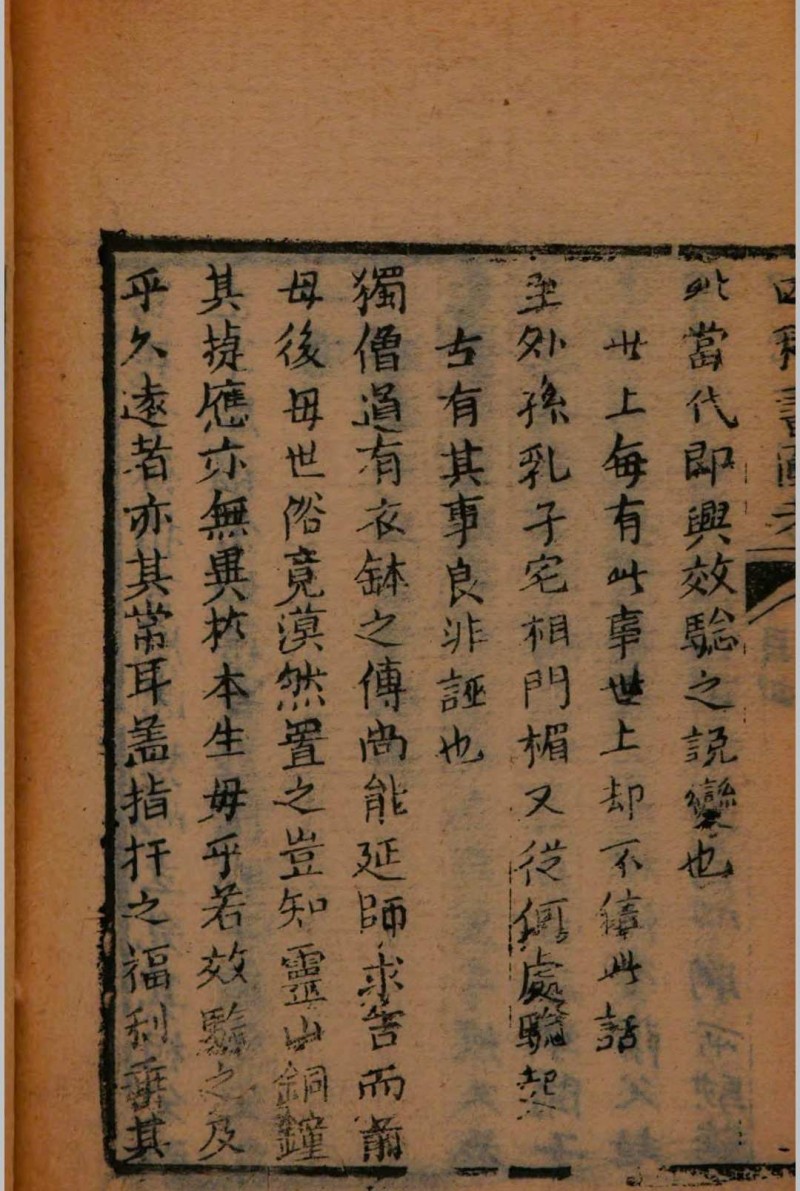 四秘書
此當代即興效驗之説變也
世上每有此事世上却不信此話
至外孫乳子宅相門楣又從何處驗起
古有其事良非誣也
獨僧道有衣鉢之傳尚能延師求害而前
母後母世俗竟漠然置之豈知靈山銅鐘
其捷應亦無異於本生毋乎若效驗之及
乎久遠者亦其常耳葢指扞之福利乗其